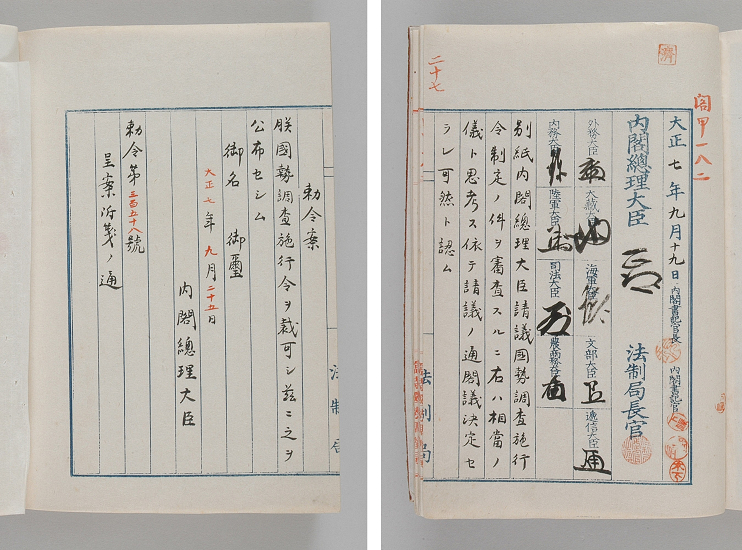 閣甲一八二
大正七年九月十九日
内閣書記官長
内閣書記官
内閣總理大臣
法制局長官
外務大臣
大藏大臣
海軍大臣
文部大臣
遞信大臣
内務大臣
陸軍大臣
司法大臣
農商務大臣
別紙内閣總理大臣請議國勢調査施行
令制定ノ件ヲ審査スルニ右ハ相當ノ
儀ト思考ス依テ請議ノ通閣議決定セ
ラレ可然ト認ム
二十七
法制局
勅令案
朕國勢調査施行令ヲ裁可シ茲ニ之ヲ
公布セシム
御名御璽
大正七年九月二十五日
内閣總理大臣
勅令第三百五十八號
呈案附箋ノ通
法制局